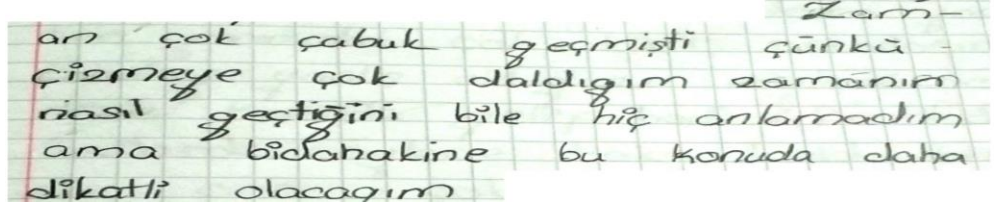 Zam-
an çok çabuk geçmişti çünkü
çizmeye çok daldıgım zamanın
nasıl geçtiğini bile hiç anlamadım
ama bidahakine bu konuda daha
dikatli olacagım